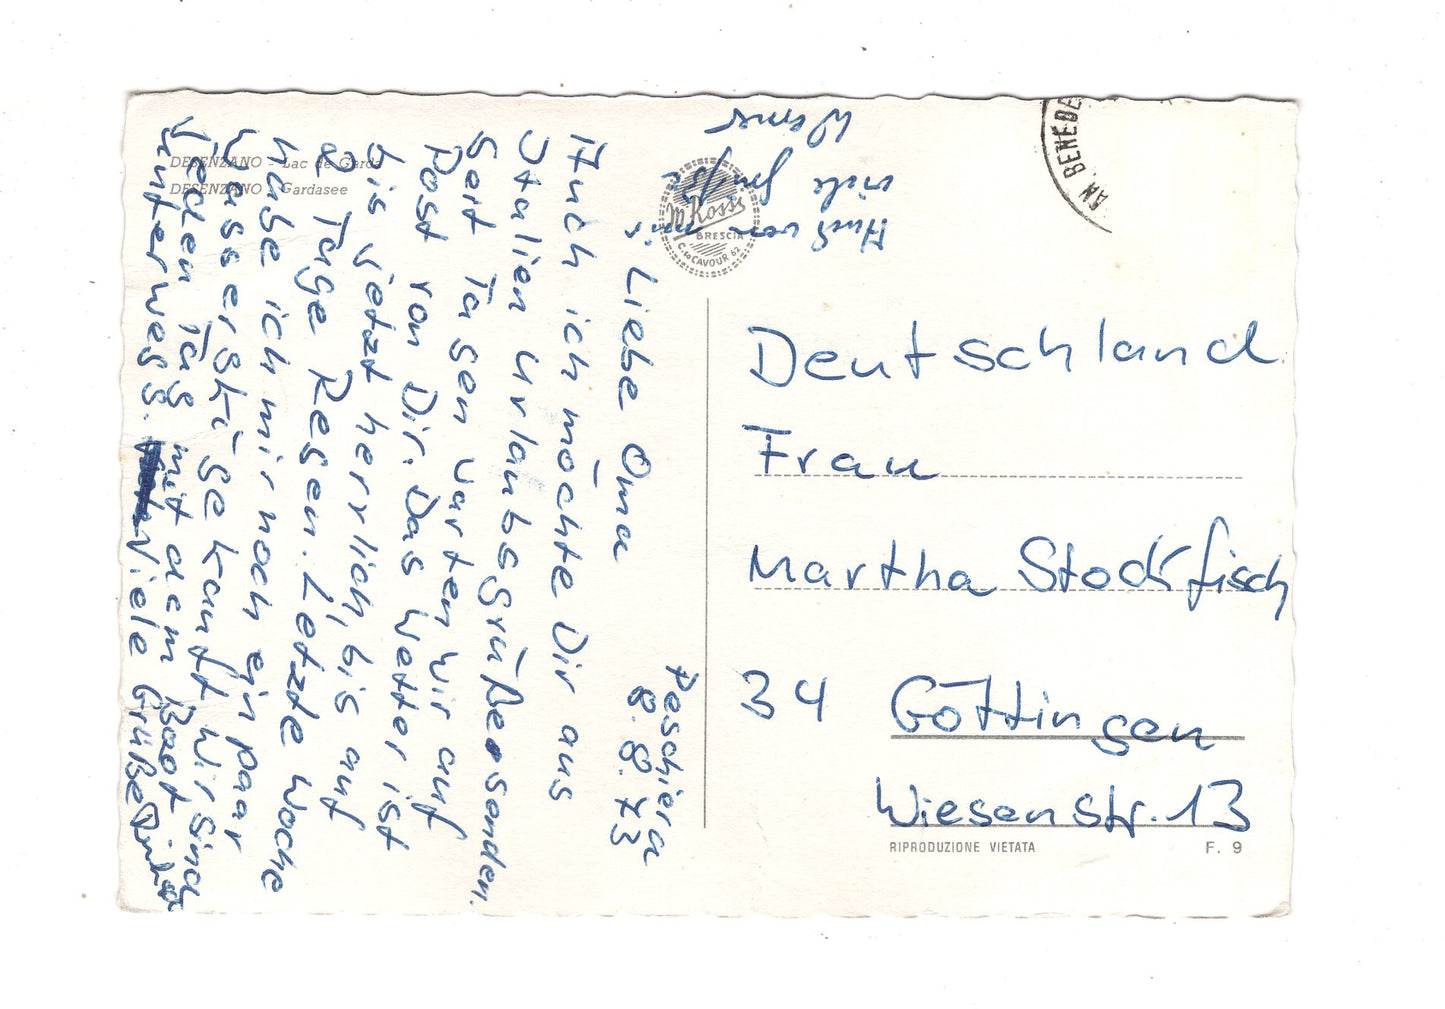 DESENZANO - Lac de Garda
DESENZANO - Gardasee
Rossi
BRESCIA
C.so CAVOUR 62
AN BENEDE
Peschiera
8.8.73
Liebe Oma
Auch ich möchte Dir aus
Italien Urlaubsgrüße senden.
Seit Tagen warten wir auf
Post von Dir. Das Wetter ist
bis jetzt herrlich, bis auf
2 Tage Regen. Letzte Woche
habe ich mir noch ein paar
Wasserski gekauft. Wir sind
jeden Tag mit dem Boot
unterwegs. Viele Grüße
Auch von mir
viele Grüße
Werner
Deutschland
Frau
Martha Stockfisch
34 Göttingen
Wiesenstr. 13
RIPRODUZIONE VIETATA F. 9